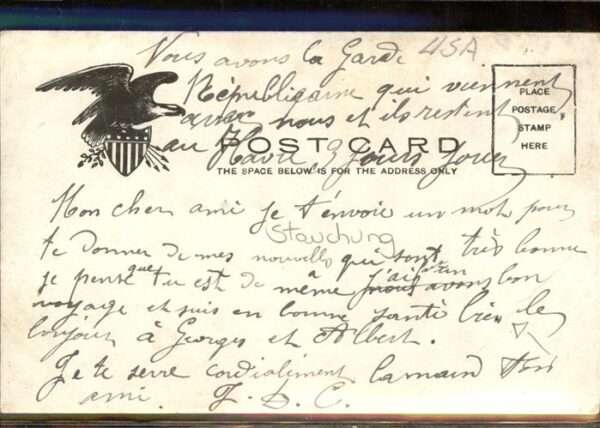 Vous avons la Garde USA
Républicaine qui viennent
avec nous et ils restent
PLACE
POSTAGE
STAMP
HERE
POST CARD
au Havre 9 jours
THE SPACE BELOW IS FOR THE ADDRESS ONLY
Mon cher ami je t'envoie un mot pour
Stauchung
te donner de mes nouvelles qui sont très bonne
je pense que tu est de même j'ai un bon
voyage et suis en bonne santé bien le
bonjour à Georges et Albert.
Je te serre cordialiment la main ton
ami. F. D. C.